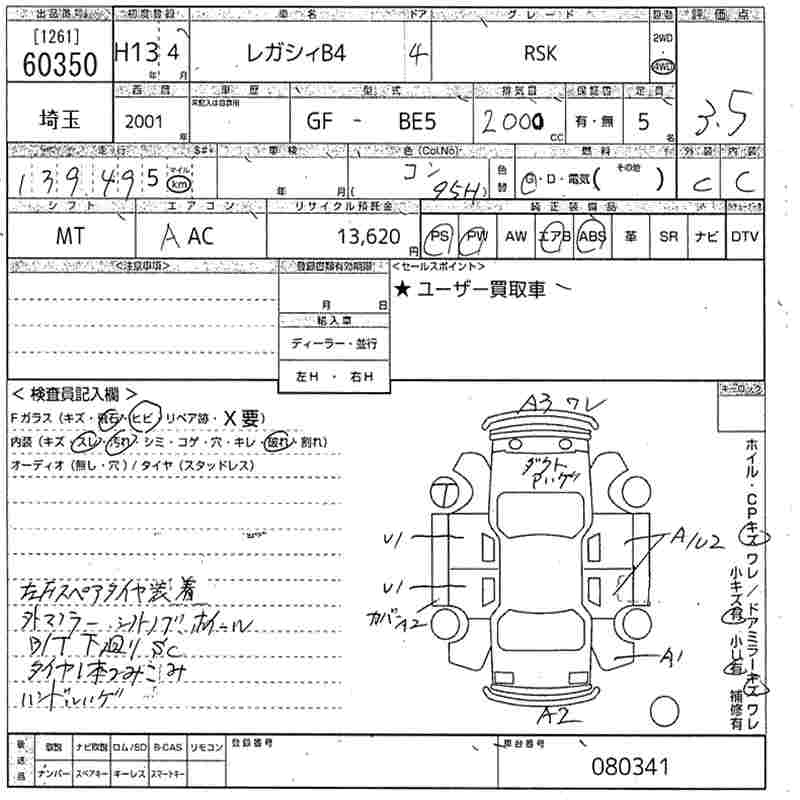 出品番号 初度登録 車名 ドア グレード 駆動 評価点
[1261] 60350 H13 年 4 月 レガシィB4 4 RSK 2WD ・ 4WD 3.5
西暦 車歴 型式 排気量 保証書 定員
埼玉 2001 年 未記入は自家用 GF - BE5 2000 CC 有・無 5 名
走行 S#* 車検 色(Col.No) 色替 燃料 外装 内装
139495 マイル km 年 月 ( コン 95H ) G・D・電気( その他 ) C C
シフト エアコン リサイクル預託金 純正装備品
MT A AC 13,620 円 PS PW AW エアB ABS 革 SR ナビ DTV
<注意事項> 登録書類有効期限 <セールスポイント>
月 日 ★ ユーザー買取車
輸入車
ディーラー・並行
左H ・ 右H
< 検査員記入欄 > キーロック
Fガラス (キズ・飛石・ヒビ・リペア跡・X要)
内装 (キズ・スレ・汚れ・シミ・コゲ・穴・キレ・破れ・割れ)
オーディオ (無し・穴) / タイヤ (スタッドレス)
A3 ワレ
ダクト
Pハゲ
T
U1 A/U2
U1
カバーA2
A1
A2
ホイル・CPキズ ワレ / ドアミラーキズ ワレ
小キズ有 小U有 補修有
左Fスペアタイヤ装着
外マフラー シフトノブ ホイール
B/T 下廻り SC
タイヤ1本つみこみ
ハンドルハゲ
後送品 取説 ナビ取説 ロム/SD B-CAS リモコン 登録番号 車台番号
ナンバー スペアキー キーレス スマートキー 080341